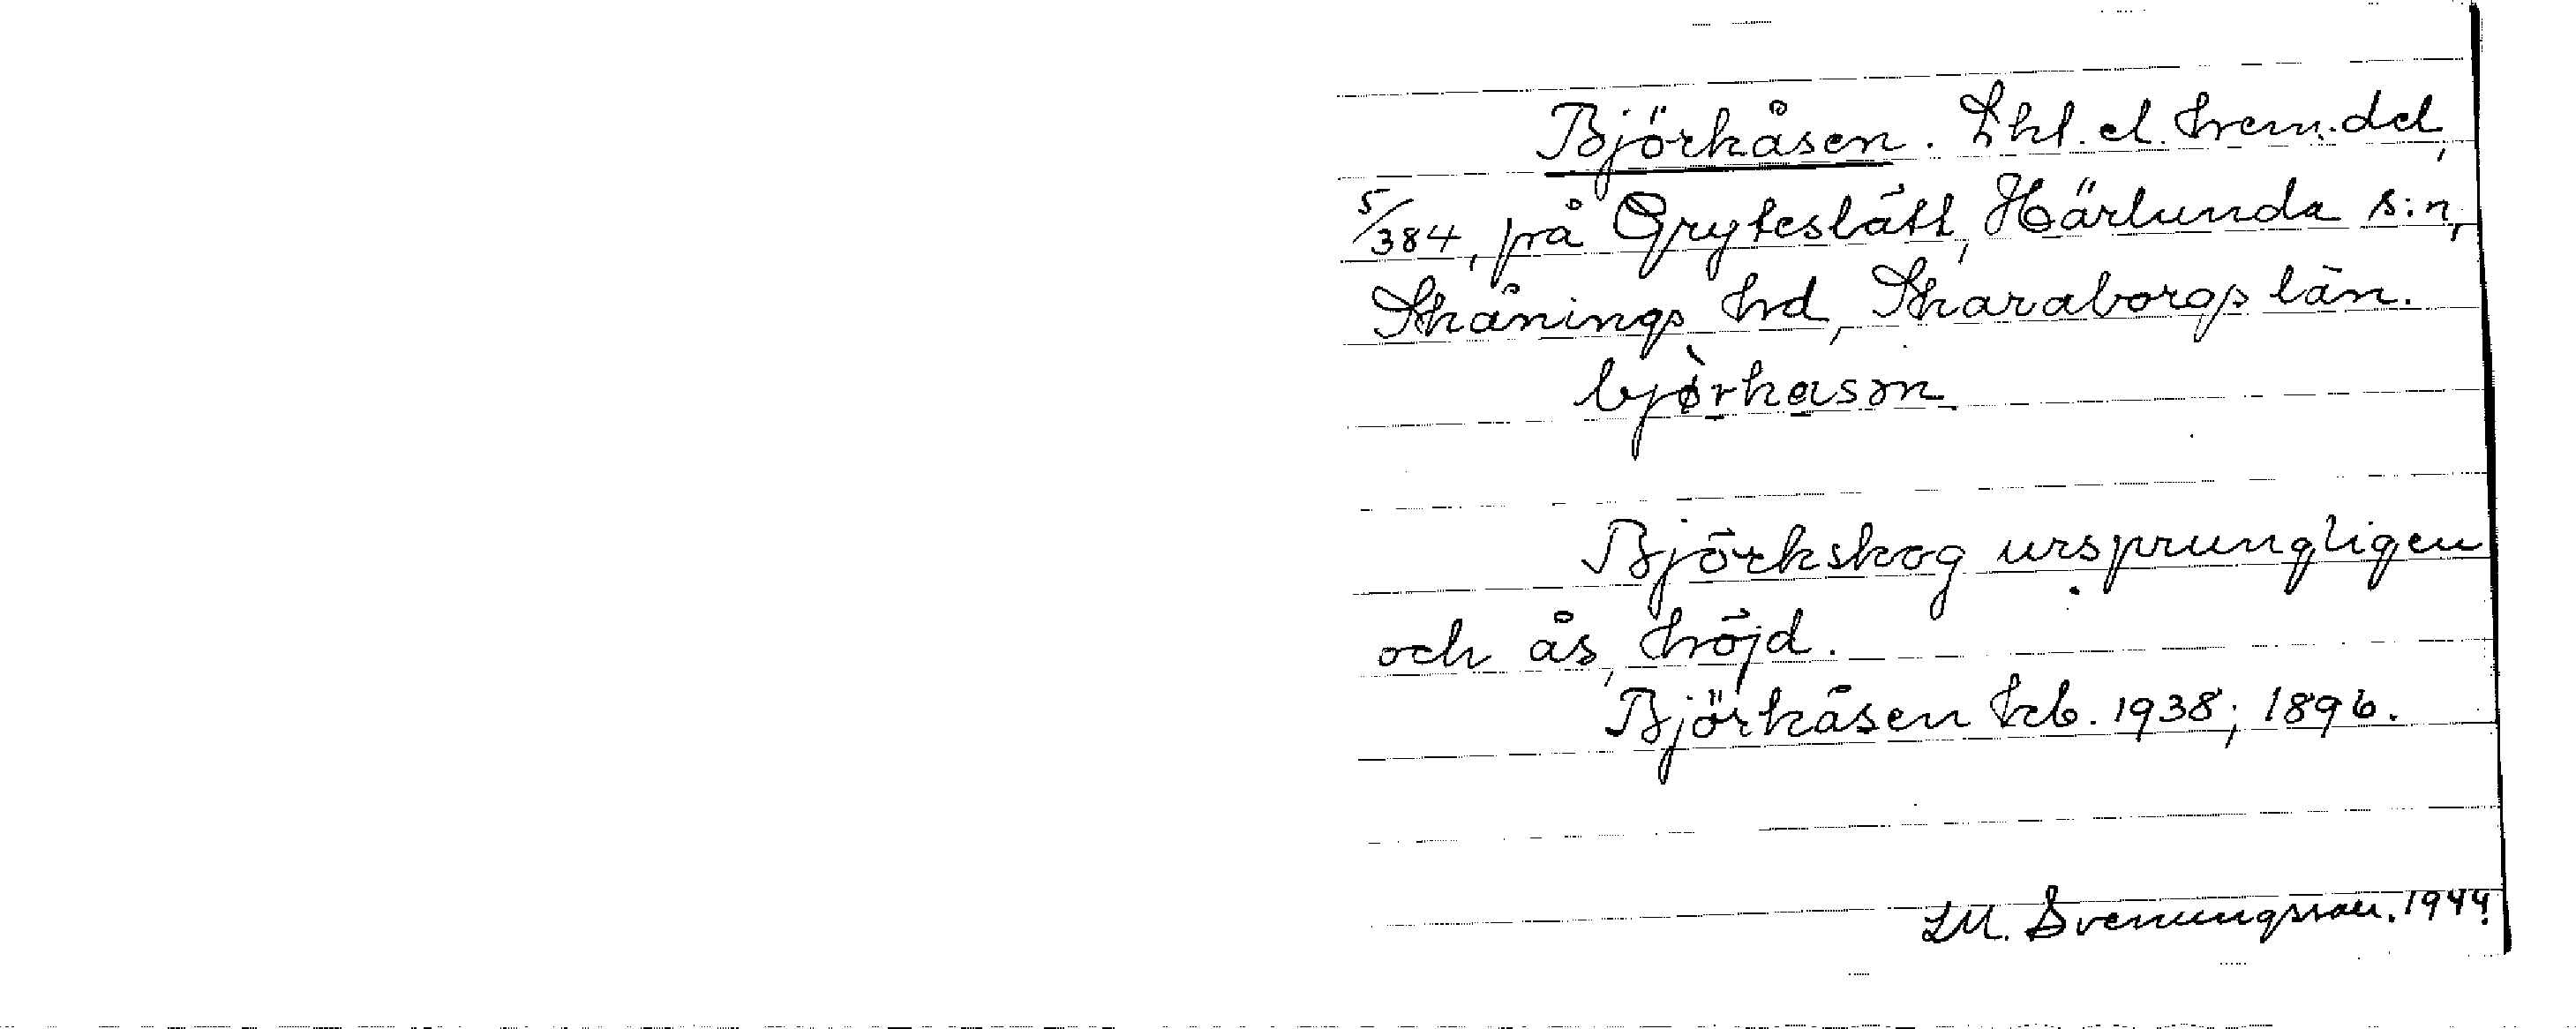 Björkåsen. Lht. el. hem.del,
5/384, på Gryteslätt, Härlunda s:n,
Skånings hd, Skaraborgs län.
bjø̀rkasən
Björkskog ursprungligen
och ås, höjd.
Björkåsen kb. 1938; 1896.
LM. Svenungsson. 1944.